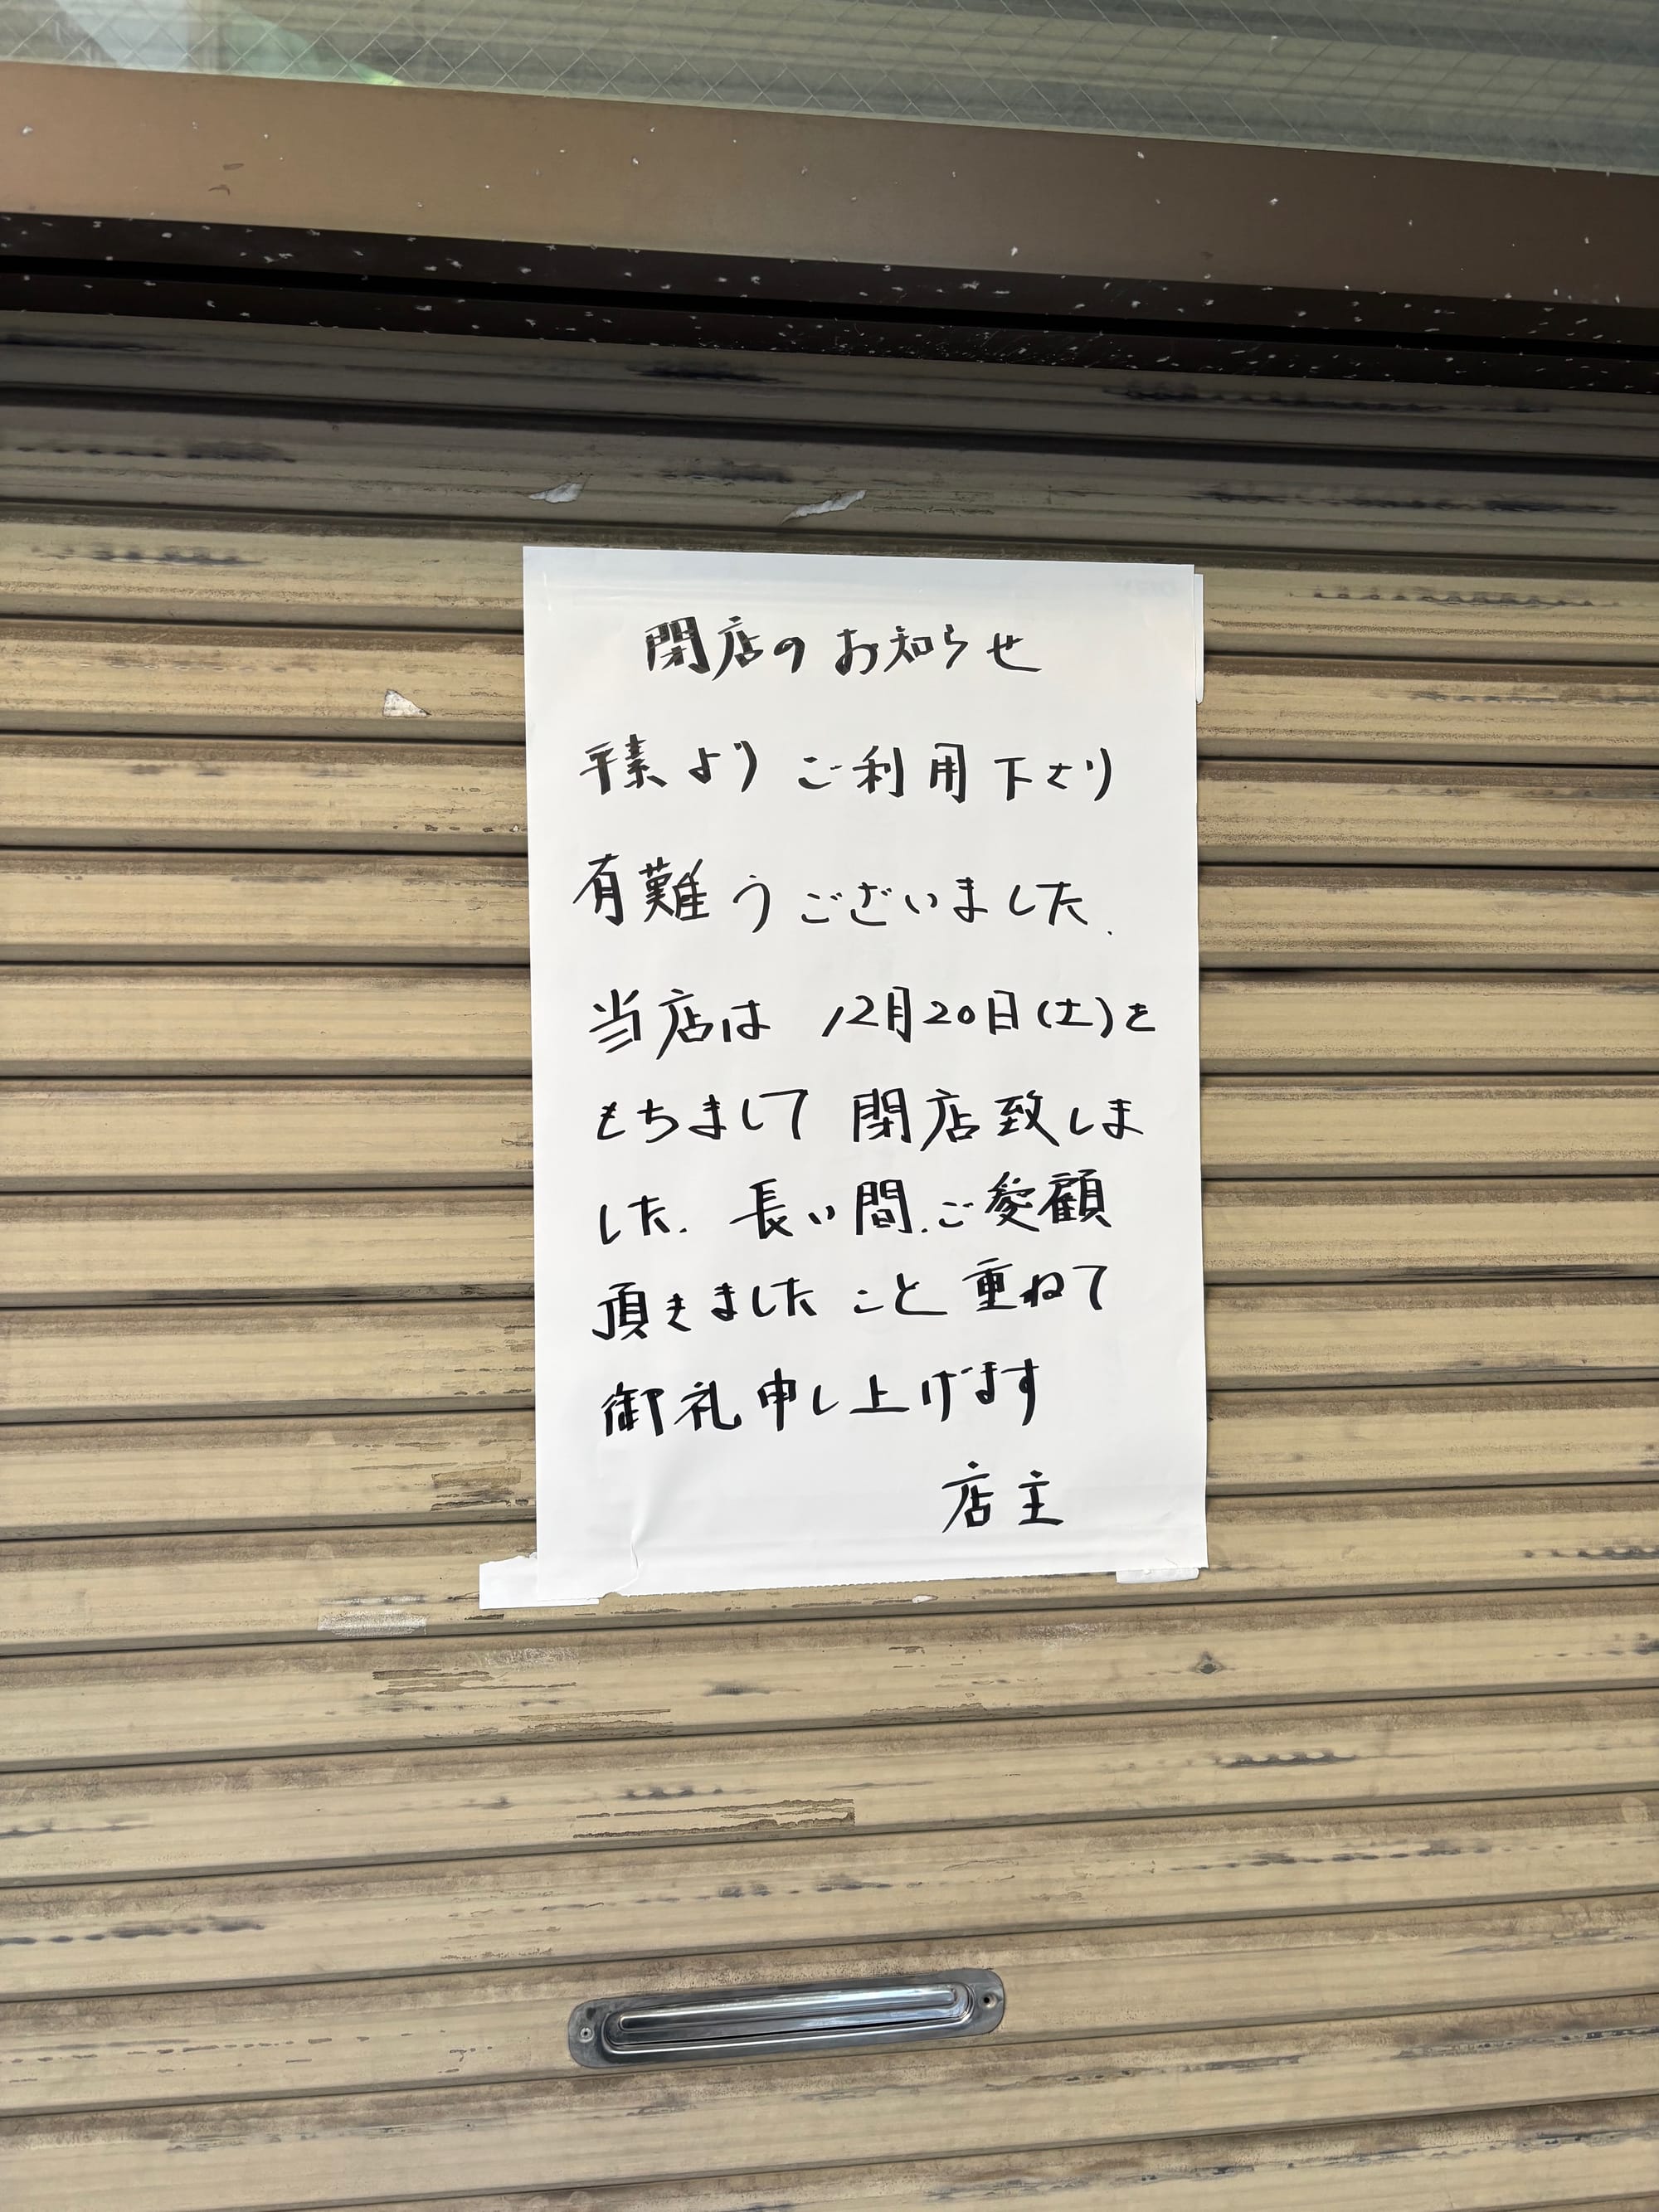 閉店のお知らせ
平素よりご利用下さり
有難うございました.
当店は 12月20日(土)を
もちまして 閉店致しま
した. 長い間.ご愛顧
頂きました こと 重ねて
御礼申し上げます
店主